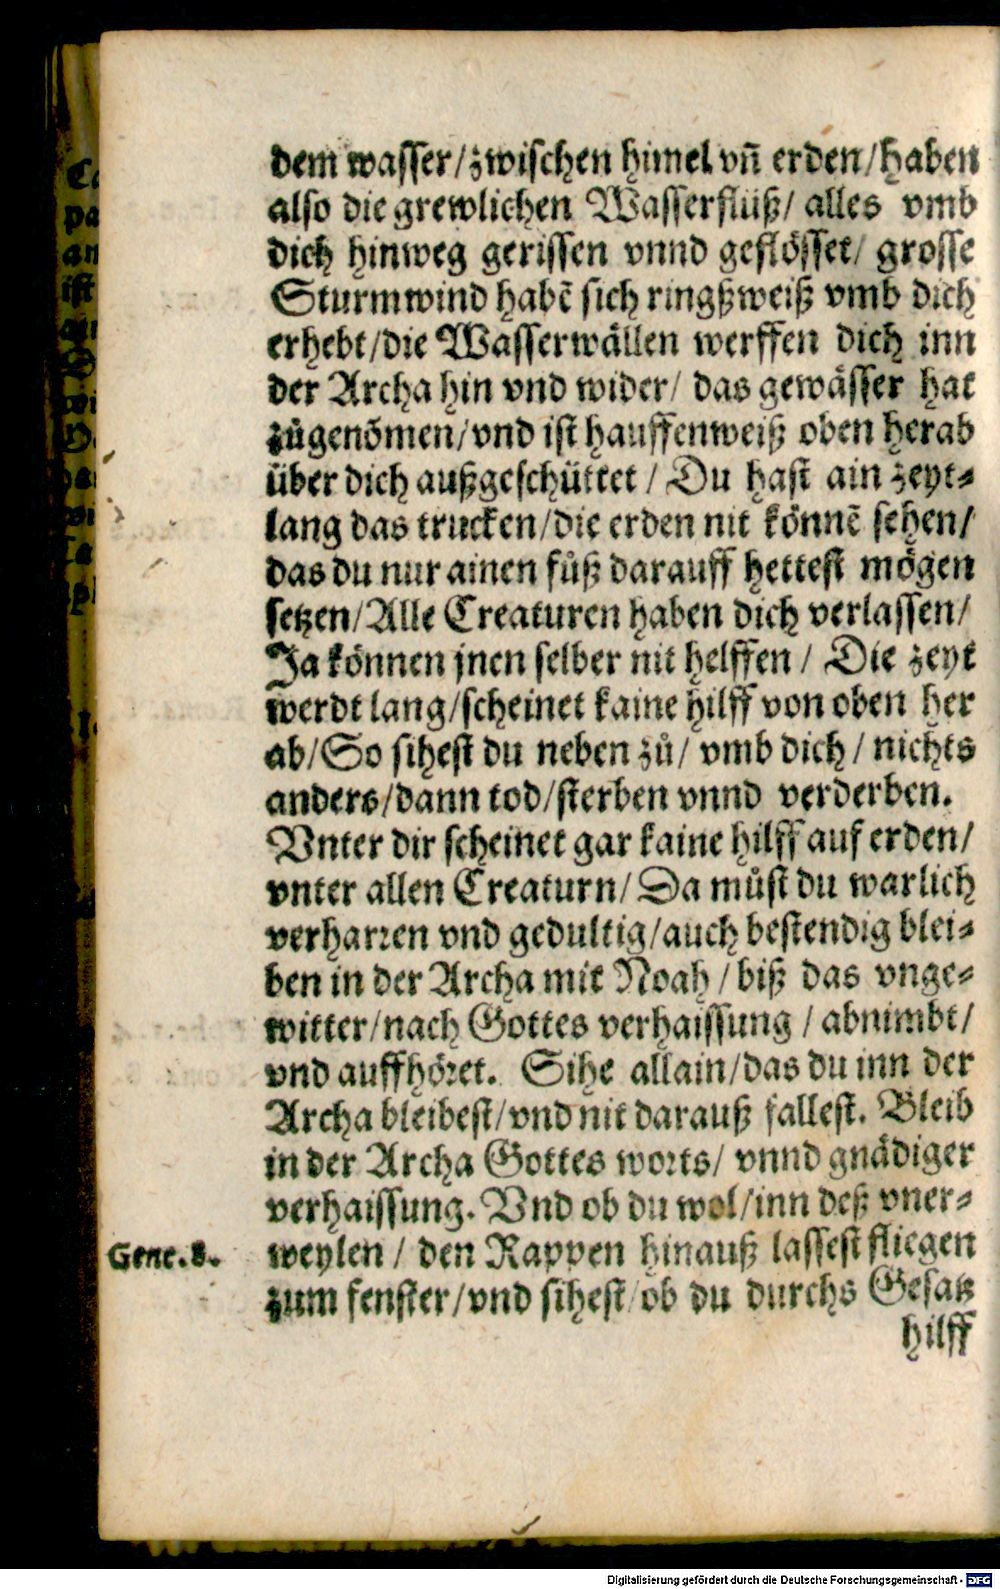 dem wasser/zwischen himel vñ erden/haben
also die grewlichen Wasserflüß/ alles vmb
dich hinweg gerissen vnnd geflösset/ grosse
Sturmwind habẽ sich ringßweiß vmb dich
erhebt/die Wasserwällen werffen dich inn
der Archa hin vnd wider/ das gewässer hat
zůgenõmen/vnd ist hauffenweiß oben herab
über dich außgeschüttet / Du hast ain zeyt-
lang das trucken/die erden nit könnẽ sehen/
das du nur ainen fůß darauff hettest mögen
setzen/Alle Creaturen haben dich verlassen/
Ja können jnen selber nit helffen / Die zeyt
werdt lang/scheinet kaine hilff von oben her
ab/So sihest du neben zů/ vmb dich / nichts
anders/dann tod/sterben vnnd verderben.
Vnter dir scheinet gar kaine hilff auf erden/
vnter allen Creaturn/ Da můst du warlich
verharren vnd gedultig/auch bestendig blei-
ben in der Archa mit Noah / biß das vnge-
witter/nach Gottes verhaissung / abnimbt/
vnd auffhöret. Sihe allain/das du inn der
Archa bleibest/vnd nit darauß fallest. Bleib
in der Archa Gottes worts/ vnnd gnädiger
verhaissung. Vnd ob du wol/inn deß vner-
Gene.8. weylen / den Rappen hinauß lassest fliegen
zum fenster/vnd sihest/ob du durchs Gesatz
hilff
Digitalisierung gefördert durch die Deutsche Forschungsgemeinschaft - DFG